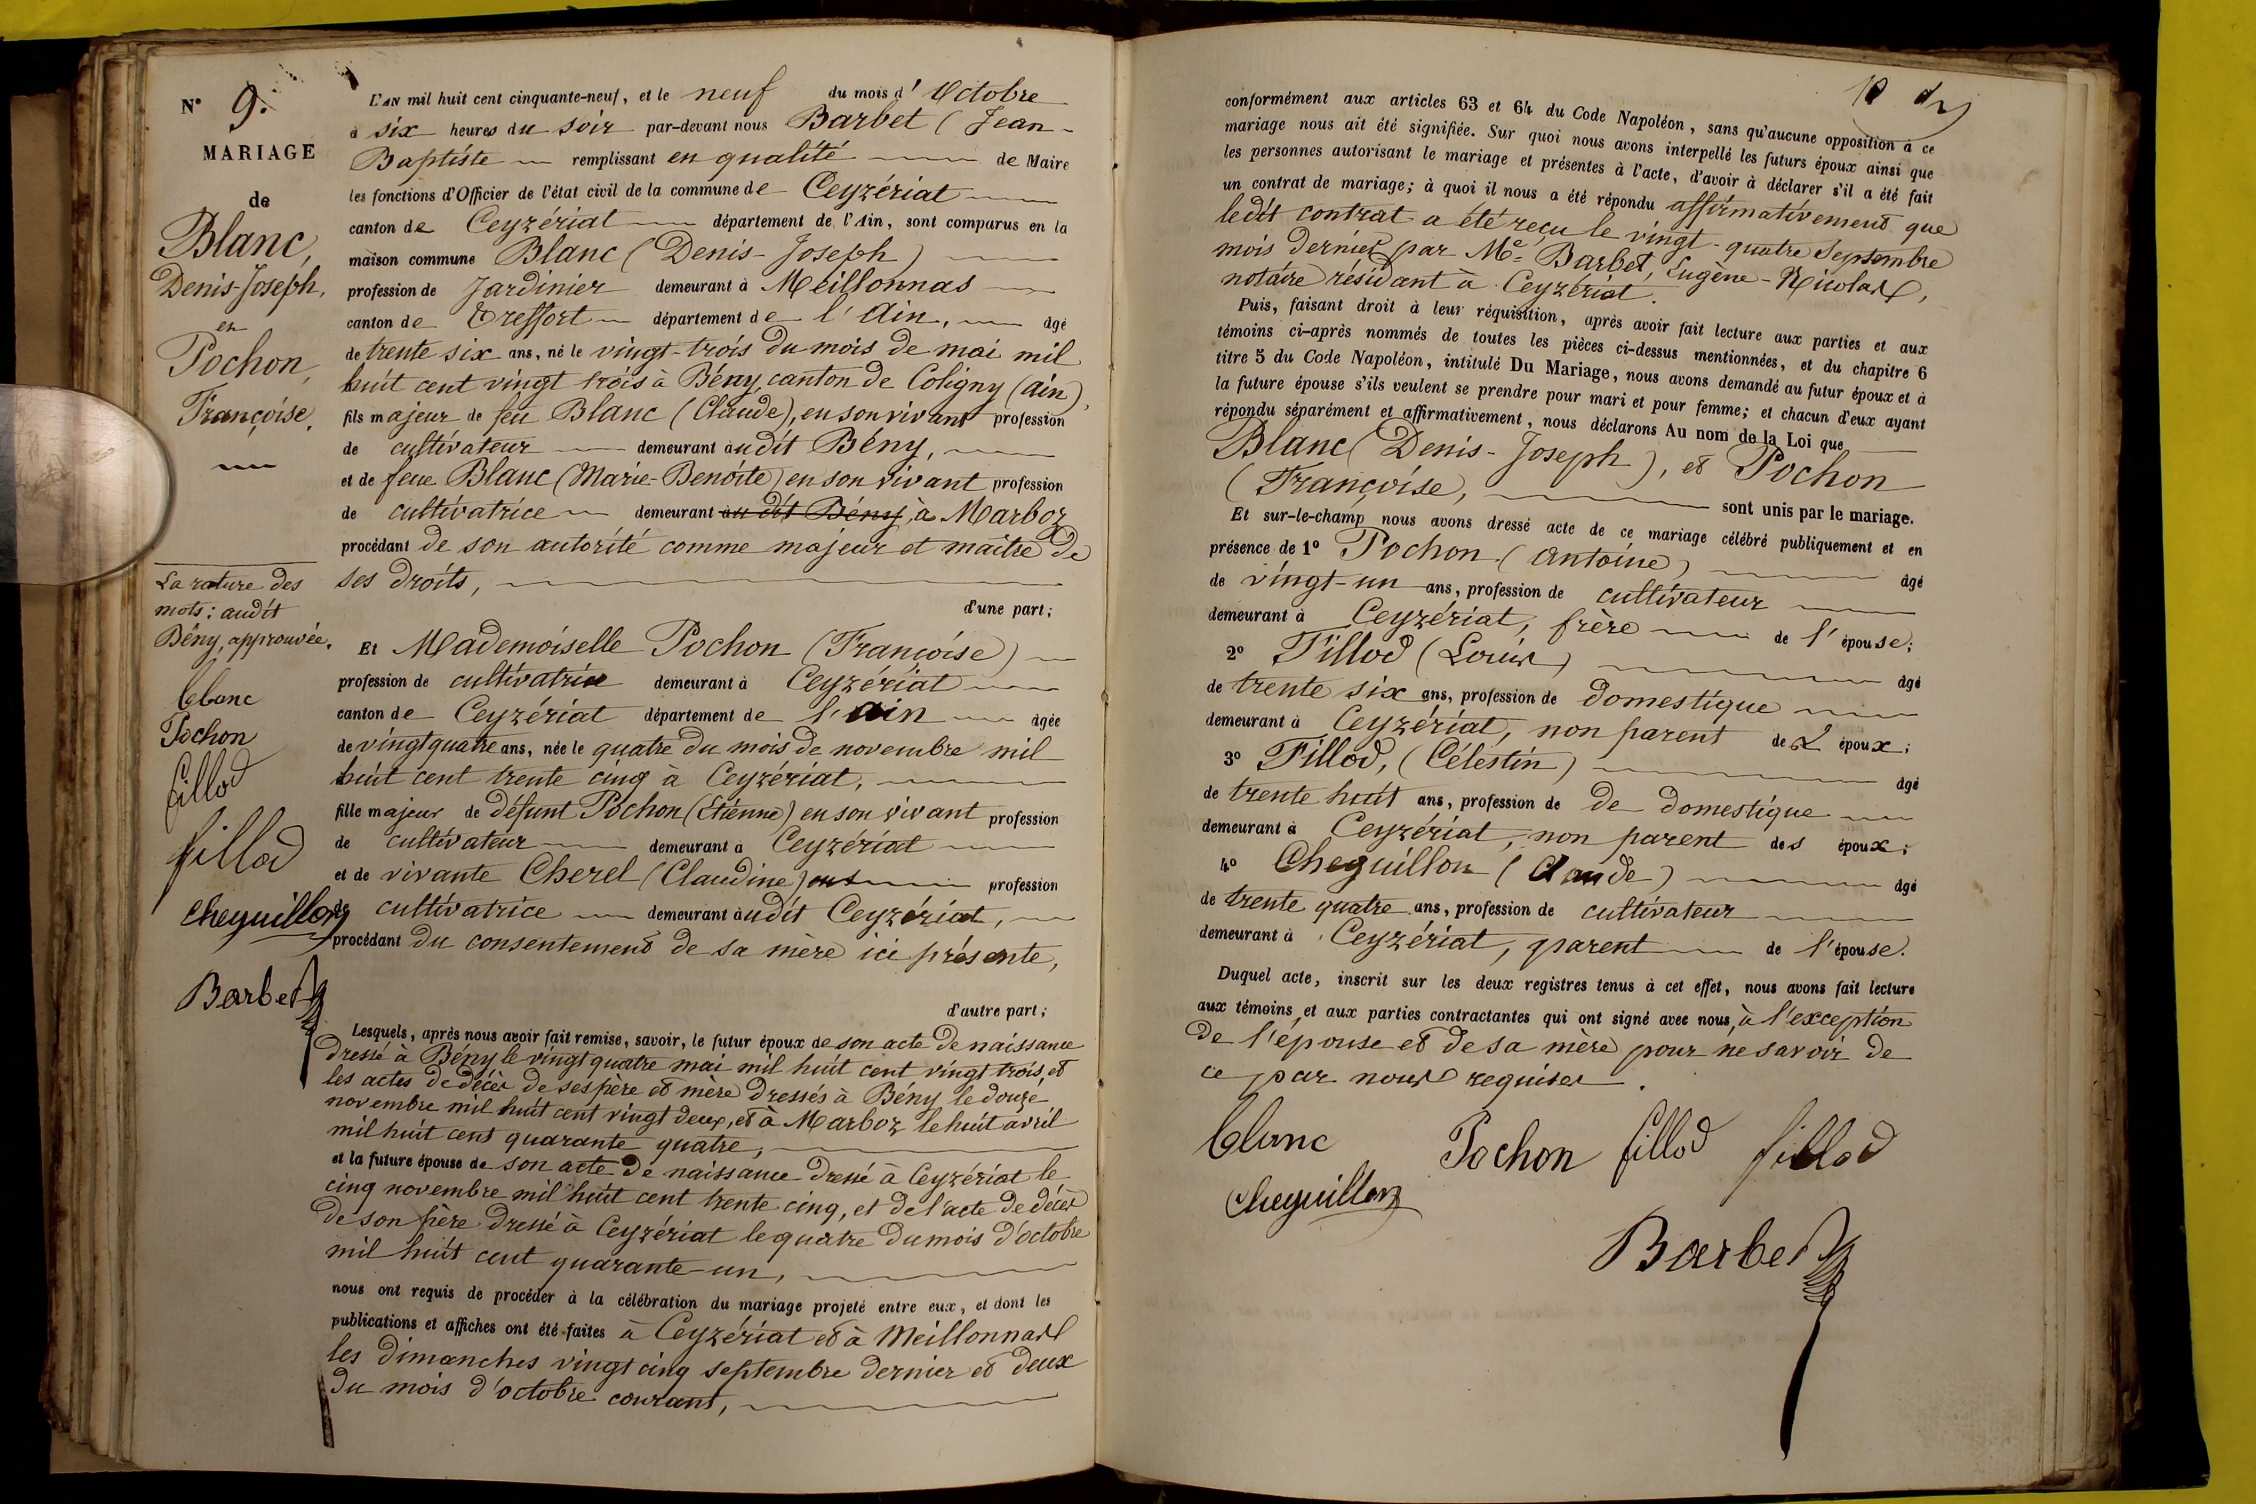 N° 9.
MARIAGE
de
Blanc,
Denis-Joseph,
et
Pochon,
Françoise.
La rature des
mots: audit
Bény, approuvée.
blanc
Pochon
fillod
fillod
Cheguillon
Barbet
L'AN mil huit cent cinquante-neuf, et le neuf du mois d'Octobre
à six heures du soir par-devant nous Barbet (Jean-
Baptiste remplissant en qualité de Maire
les fonctions d'Officier de l'état civil de la commune de Ceyzériat
canton de Ceyzériat département de l'Ain, sont comparus en la
maison commune Blanc (Denis-Joseph)
profession de Jardinier demeurant à Meillonnas
canton de Treffort département de l'Ain, âgé
de trente six ans, né le vingt-trois du mois de mai mil
huit cent vingt trois à Bény, canton de Coligny (Ain),
fils majeur de feu Blanc (Claude), en son vivant profession
de cultivateur demeurant audit Bény,
et de feue Blanc (Marie-Benoite) en son vivant profession
de cultivatrice demeurant audit Bény, à Marboz
procédant de son autorité comme majeur et maître de
ses droits,
d'une part;
Et Mademoiselle Pochon (Françoise)
profession de cultivatrice demeurant à Ceyzériat
canton de Ceyzériat département de l'Ain âgée
de vingt quatre ans, née le quatre du mois de novembre mil
huit cent trente cinq à Ceyzériat,
fille majeur de défunt Pochon (Etienne) en son vivant profession
de cultivateur demeurant à Ceyzériat
et de vivante Cherel (Claudine) profession
de cultivatrice demeurant audit Ceyzériat,
procédant du consentement de sa mère ici présente,
d'autre part;
Lesquels, après nous avoir fait remise, savoir, le futur époux de son acte de naissance
dressé à Bény le vingt quatre mai mil huit cent vingt trois, et
les actes de décès de ses père et mère dressés à Bény le douze
novembre mil huit cent vingt deux, et à Marboz le huit avril
mil huit cent quarante quatre,
et la future épouse de son acte de naissance dressé à Ceyzériat le
cinq novembre mil huit cent trente cinq, et de l'acte de décès
de son père dressé à Ceyzériat le quatre du mois d'octobre
mil huit cent quarante-un,
nous ont requis de procéder à la célébration du mariage projeté entre eux, et dont les
publications et affiches ont été faites à Ceyzériat et à Meillonnas
les dimanches vingt cinq septembre dernier et deux
du mois d'octobre courant,
10
conformément aux articles 63 et 64 du Code Napoléon, sans qu'aucune opposition à ce
mariage nous ait été signifiée. Sur quoi nous avons interpellé les futurs époux ainsi que
les personnes autorisant le mariage et présentes à l'acte, d'avoir à déclarer s'il a été fait
un contrat de mariage; à quoi il nous a été répondu affirmativement que
ledit contrat a été reçu le vingt-quatre Septembre
mois dernier par Me Barbet, Eugène-Nicolas,
notaire résidant à Ceyzériat.
Puis, faisant droit à leur réquisition, après avoir fait lecture aux parties et aux
témoins ci-après nommés de toutes les pièces ci-dessus mentionnées, et du chapitre 6
titre 5 du Code Napoléon, intitulé Du Mariage, nous avons demandé au futur époux et à
la future épouse s'ils veulent se prendre pour mari et pour femme; et chacun d'eux ayant
répondu séparément et affirmativement, nous déclarons Au nom de la Loi que
Blanc (Denis-Joseph), et Pochon
(Françoise, sont unis par le mariage.
Et sur-le-champ nous avons dressé acte de ce mariage célébré publiquement et en
présence de 1° Pochon (Antoine) âgé
de vingt-un ans, profession de cultivateur
demeurant à Ceyzériat, frère de l'épouse;
2° Fillod (Louis) âgé
de trente six ans, profession de domestique
demeurant à Ceyzériat, non parent des époux;
3° Fillod, (Célestin) âgé
de trente huit ans, profession de de domestique
demeurant à Ceyzériat, non parent des époux;
4° Cheguillon (Claude) âgé
de trente quatre ans, profession de cultivateur
demeurant à Ceyzériat, parent de l'épouse.
Duquel acte, inscrit sur les deux registres tenus à cet effet, nous avons fait lecture
aux témoins et aux parties contractantes qui ont signé avec nous, à l'exception
de l'épouse et de sa mère pour ne savoir de
ce par nous requises.
blanc Pochon fillod fillod
Cheguillon
Barbet